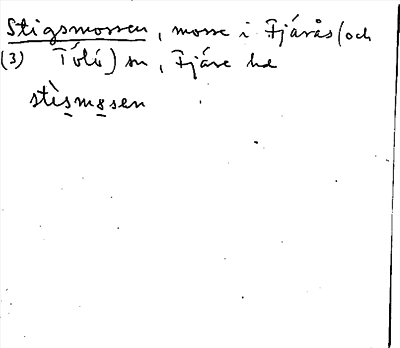 Stigsmossen, mosse i Fjärås (och
(3) Tölö) sn, Fjäre hd
stèsmosen